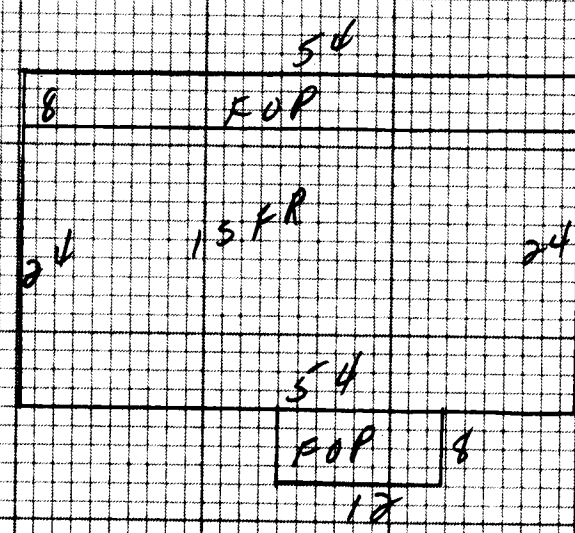 54
8 FOP
1 S FR
24 24
54
FOP 8
12